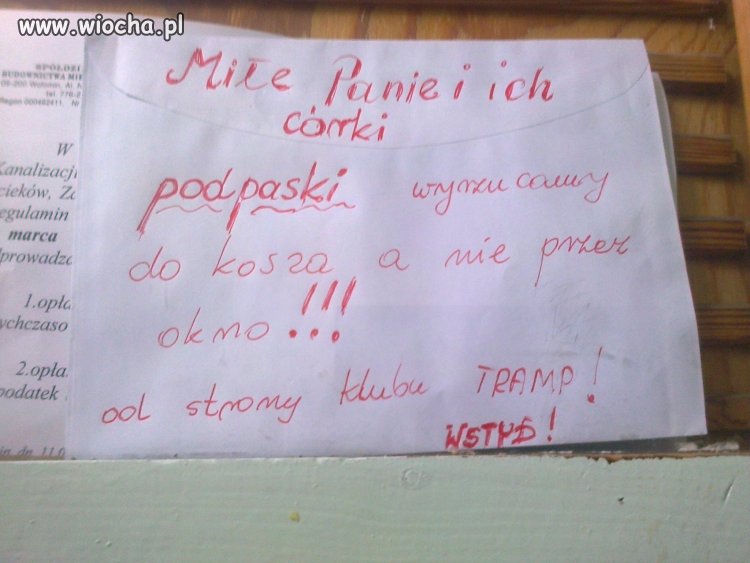 www.wiocha.pl
SPÓŁDZI
BUDOWNICTWA MIE
W
Kanalizacji
cieków, Za
regulamin
marca
prowadzo
1.opła
ychczaso
2.opła
podatek
Miłe Panie i ich
córki
podpaski wyrzucamy
do kosza a nie przez
okno!!!
od strony klubu TRAMP!
WSTYD!